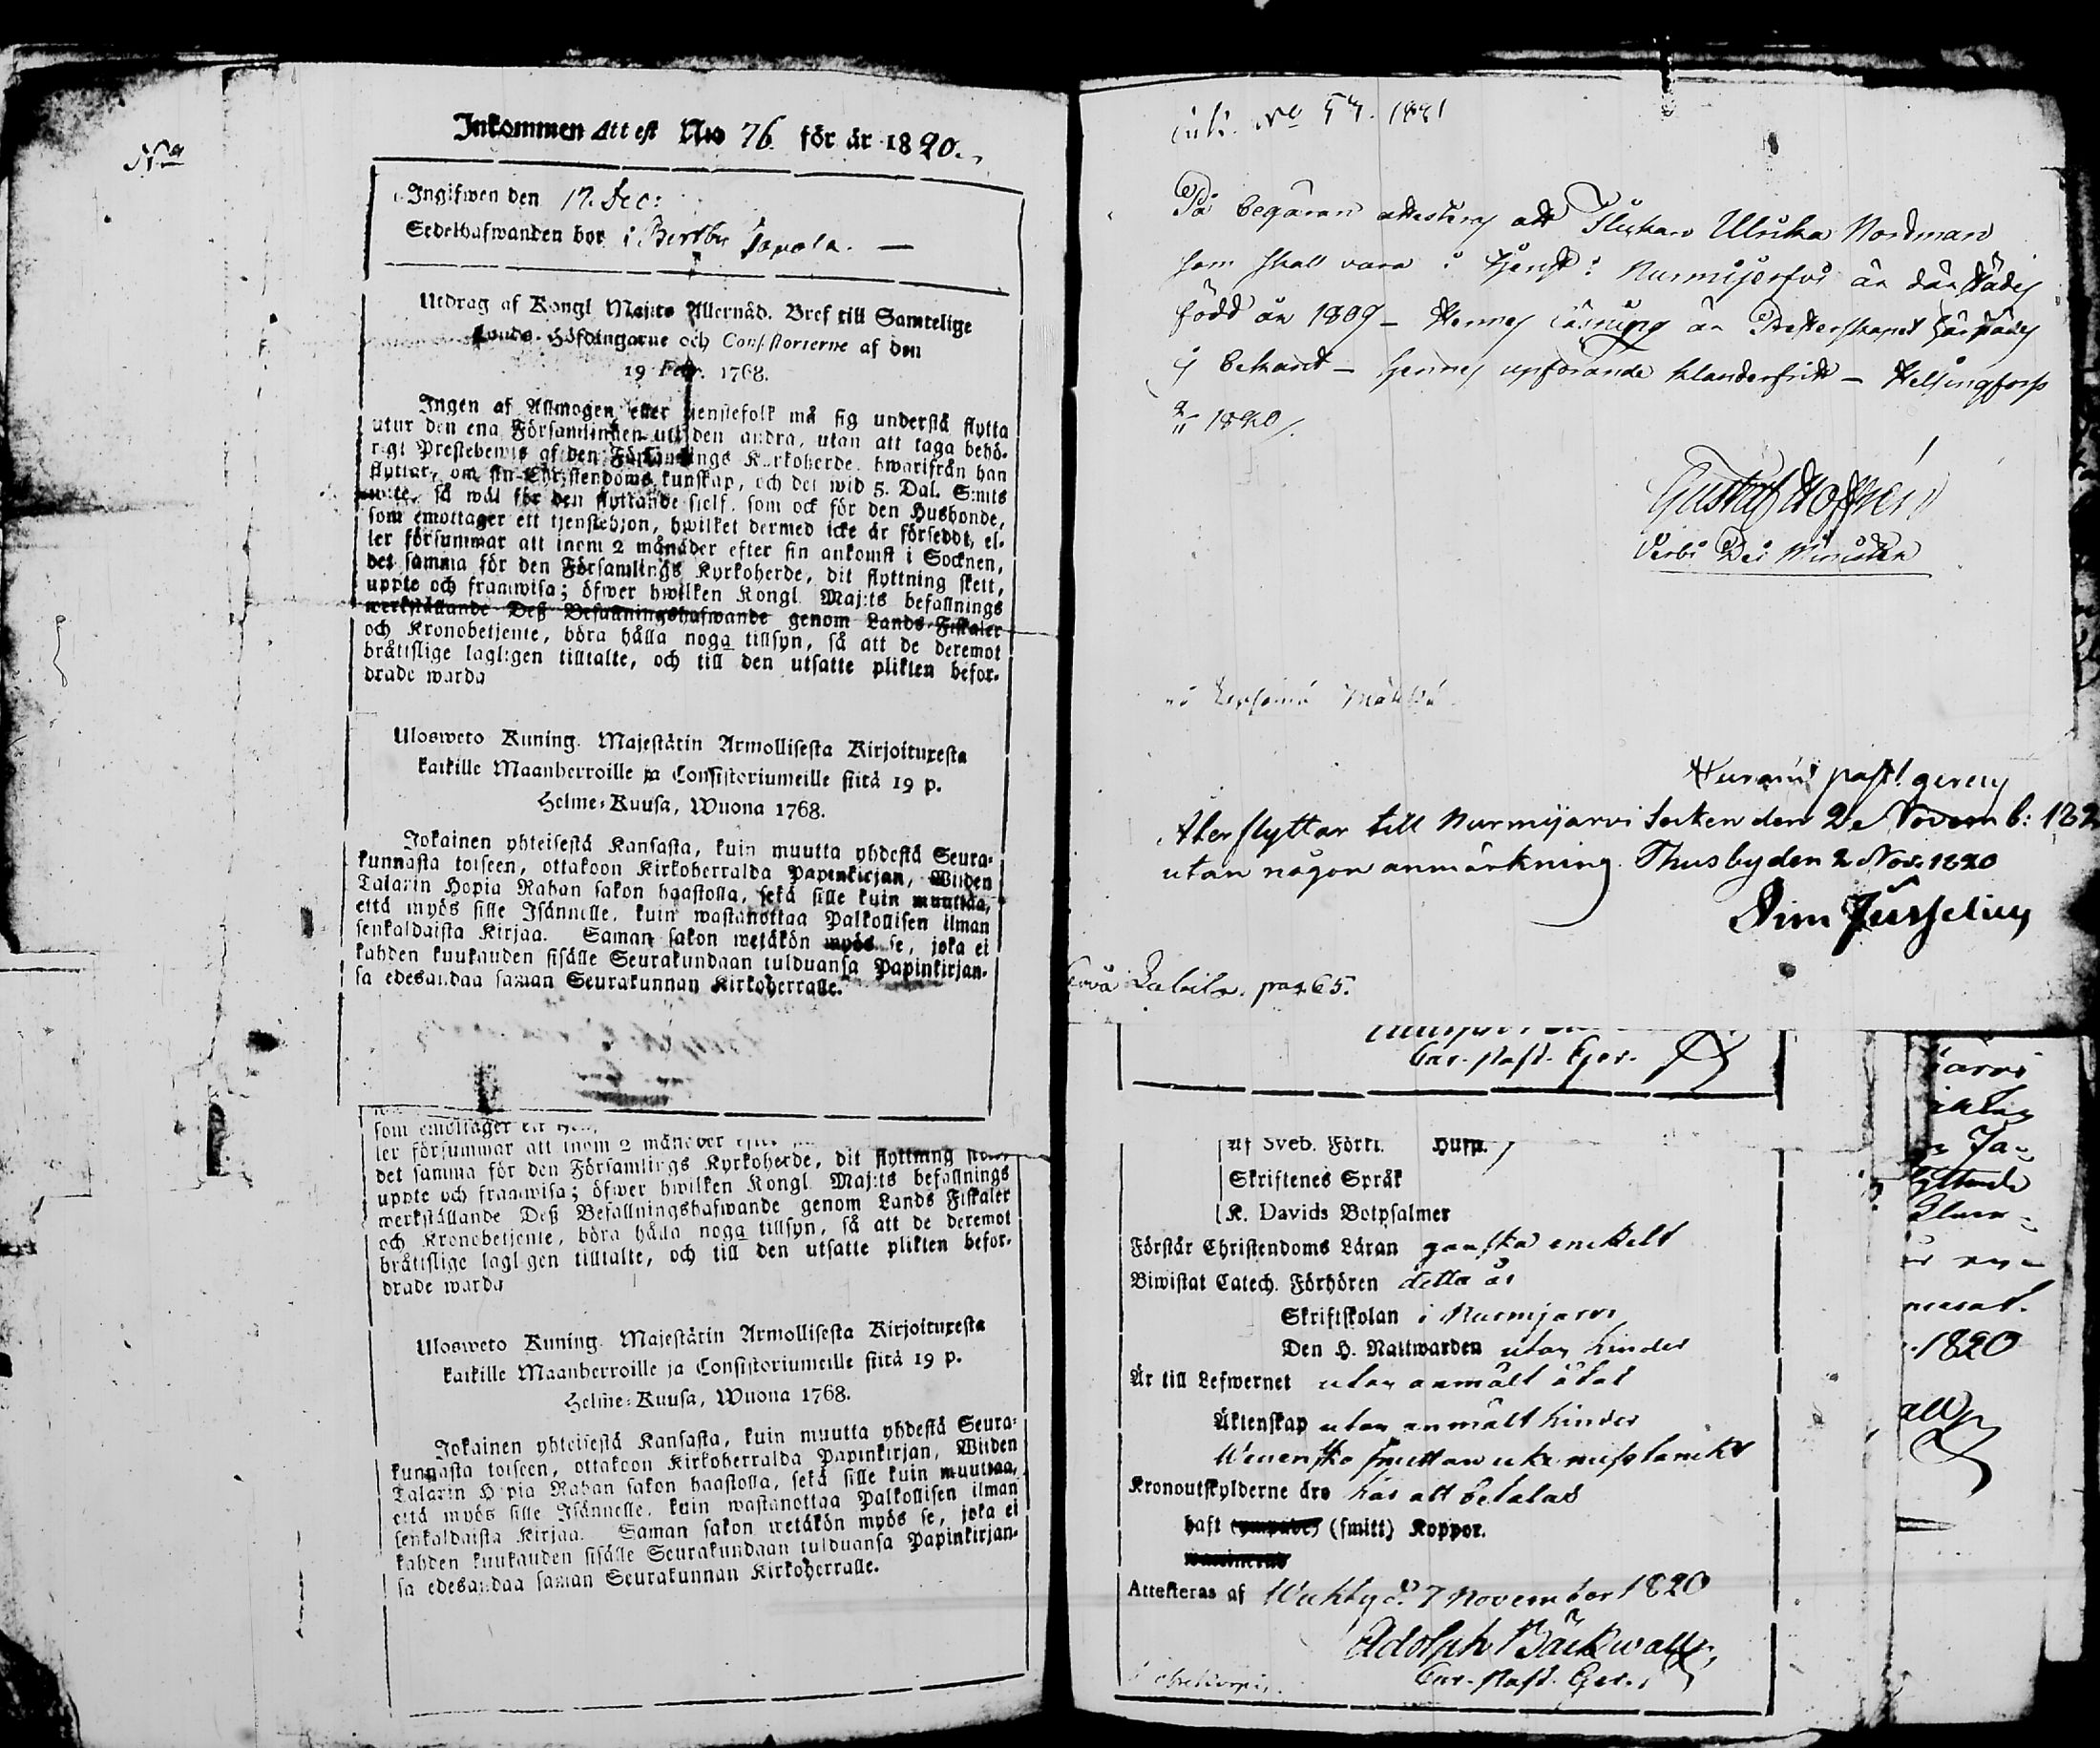 No
Inkommen Attest No 76. för år 1820.
Ingifwen den 17. Dec:
Sedelhafwanden bor i Bertby Tapola. —
Utdrag af Kongl Maj:ts Allernåd. Bref till Samtelige
Lands-Höfdingarne och Consistorierne af den
19 Febr. 1768.
Ingen af Allmogen eller tjenstefolk må sig understå flytta
utur den ena Församlingen uti den andra, utan att taga behö-
rigt Prestebewis af den Församlings Kyrkoherde, hwarifrån han
flyttar, om sin Christendoms kunskap, och det wid 5. Dal. S:mts
wite, så wäl för den flyttande sielf, som ock för den Husbonde,
som emottager ett tjenstehjon, hwilket dermed icke är försedt, el-
ler försummar att inom 2 månader efter sin ankomst i Socknen,
det samma för den Församlings Kyrkoherde, dit flyttning skett,
uppte och framwisa; öfwer hwilken Kongl. Maj:ts befallnings
werkställande Deß Befallningshafwande genom Lands Fiskaler
och Kronobetjente, böra hålla noga tillsyn, så att de deremot
bråttslige lagligen tilltalte, och till den utsatte plikten befor-
drade warda
Ulosweto Kuning. Majestätin Armollisesta Kirjoituxesta
kaikille Maanherroille ja Consistoriumeille siitä 19 p.
Helme-Kuusa, Wuona 1768.
Jokainen yhteisestä Kansasta, kuin muutta yhdestä Seura-
kunnasta toiseen, ottakoon Kirkoherralda Papinkirjan, Wiiden
Talarin Hopia Rahan sakon haastolla, sekä sille kuin muuttaa,
että myös sille Isännelle, kuin wastanottaa Palkollisen ilman
senkaldaista Kirjaa. Saman sakon wetäkön myös se, joka ei
kahden kuukauden sisälle Seurakundaan tulduansa Papinkirjan-
sa edesandaa saman Seurakunnan Kirkoherralle.
som emottager ett
ler försummar att inom 2 månader
det samma för den Församlings Kyrkoherde, dit flyttning
uppte och framwisa; öfwer hwilken Kongl Maj:ts befallnings
werkställande Deß Befallningshafwande genom Lands Fiskaler
och Kronobetjente, böra hålla noga tillsyn, så att de deremot
bråttslige lagligen tilltalte, och till den utsatte plikten befor-
drade warda
Ulosweto Kuning. Majestätin Armollisesta Kirjoituxesta
kaikille Maanherroille ja Consistoriumeille siitä 19 p.
Helme-Kuusa, Wuona 1768.
Jokainen yhteisestä Kansasta, kuin muutta yhdestä Seura-
kunnasta toiseen, ottakoon Kirkoherralda Papinkirjan, Wiiden
Talarin Hopia Rahan sakon haastolla, sekä sille kuin muuttaa,
että myös sille Isännelle, kuin wastanottaa Palkollisen ilman
senkaldaista Kirjaa. Saman sakon wetäkön myös se, joka ei
kahden kuukauden sisälle Seurakundaan tulduansa Papinkirjan-
sa edesandaa saman Seurakunnan Kirkoherralle.
No 57.
På begäran attesteras att Flickan Ulrika Nordman
som skall vara i tjenst i Nurmijerfvi är därstädes
född år 1809 — Hennes läsning är Presterskapet härstädes
ej bekant — hennes upförande klanderfritt — Helsingfors
1820.
Gustaf
Verbi Dei Minister
past. gereng
Återflyttar till Nurmijarvi Socken den 2e Novemb: 182
utan någon anmärkning. Thusby den 2 Nov. 1820
Dim Jusselius
pag 65.
Cur. Past. Ger.
af Sveb. Förkl. Husn.
Skriftenes Språk
K. Davids Botpsalmer
Förstår Christendoms Läran ganska enkelt
Biwistat Catech. Förhören detta år
Skriftskolan i Nurmijarvi
Den H. Nattwarden utan hinder
Är till Lefwernet utan anmält åtal
Äktenskap utan anmält hinder
Kronoutskylderne äro här alt betalas
haft (smitt) Koppor.
Attesteras af Wichby d. 7 November 1820
Adolph Bäckwall,
Cur. Past. Ger.
järvi
Ja-
1820
all